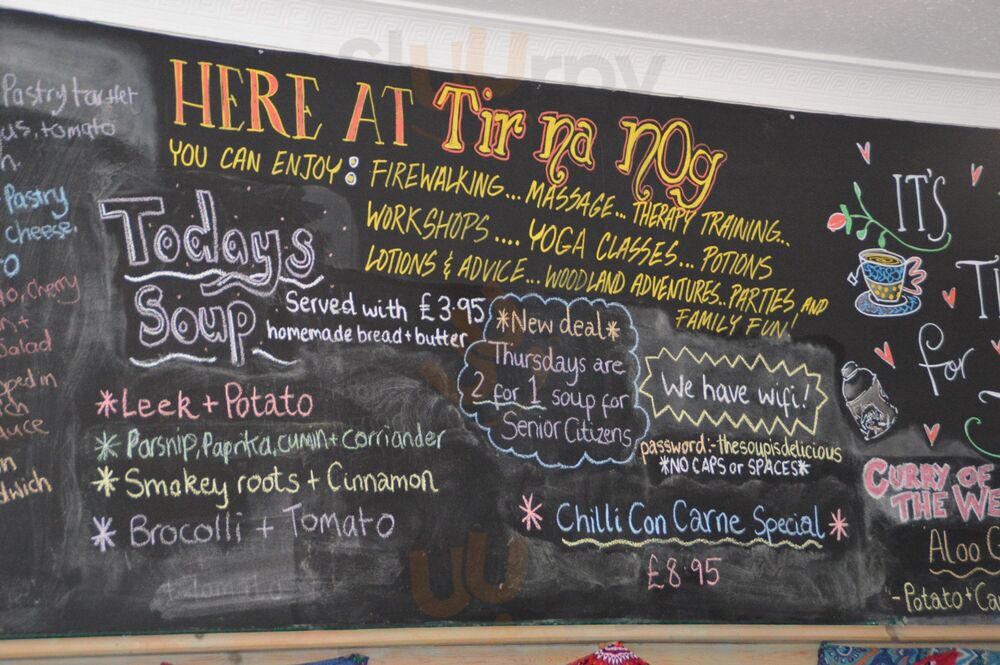 Pastry tartlet
us, tomato
Pastry
cheese.
Cherry
Salad
HERE AT Tir na nOg
YOU CAN ENJOY: FIREWALKING... MASSAGE... THERAPY TRAINING..
WORKSHOPS.... YOGA CLASSES... POTIONS
LOTIONS & ADVICE... WOODLAND ADVENTURES.. PARTIES, AND
FAMILY FUN!
Todays
Soup
Served with £3.95
homemade bread + butter
*Leek + Potato
*Parsnip, Paprika, cumin + Corriander
*Smokey roots + Cinnamon
*Brocolli + Tomato
*New deal*
Thursdays are
2 for 1 soup for
Senior Citizens
We have wifi!
password:-thesoupisdelicious
*NO CAPS or SPACES*
*Chilli Con Carne Special*
£8.95
IT'S
for
CURRY OF
THE WE
Aloo G
-Potato + Ca